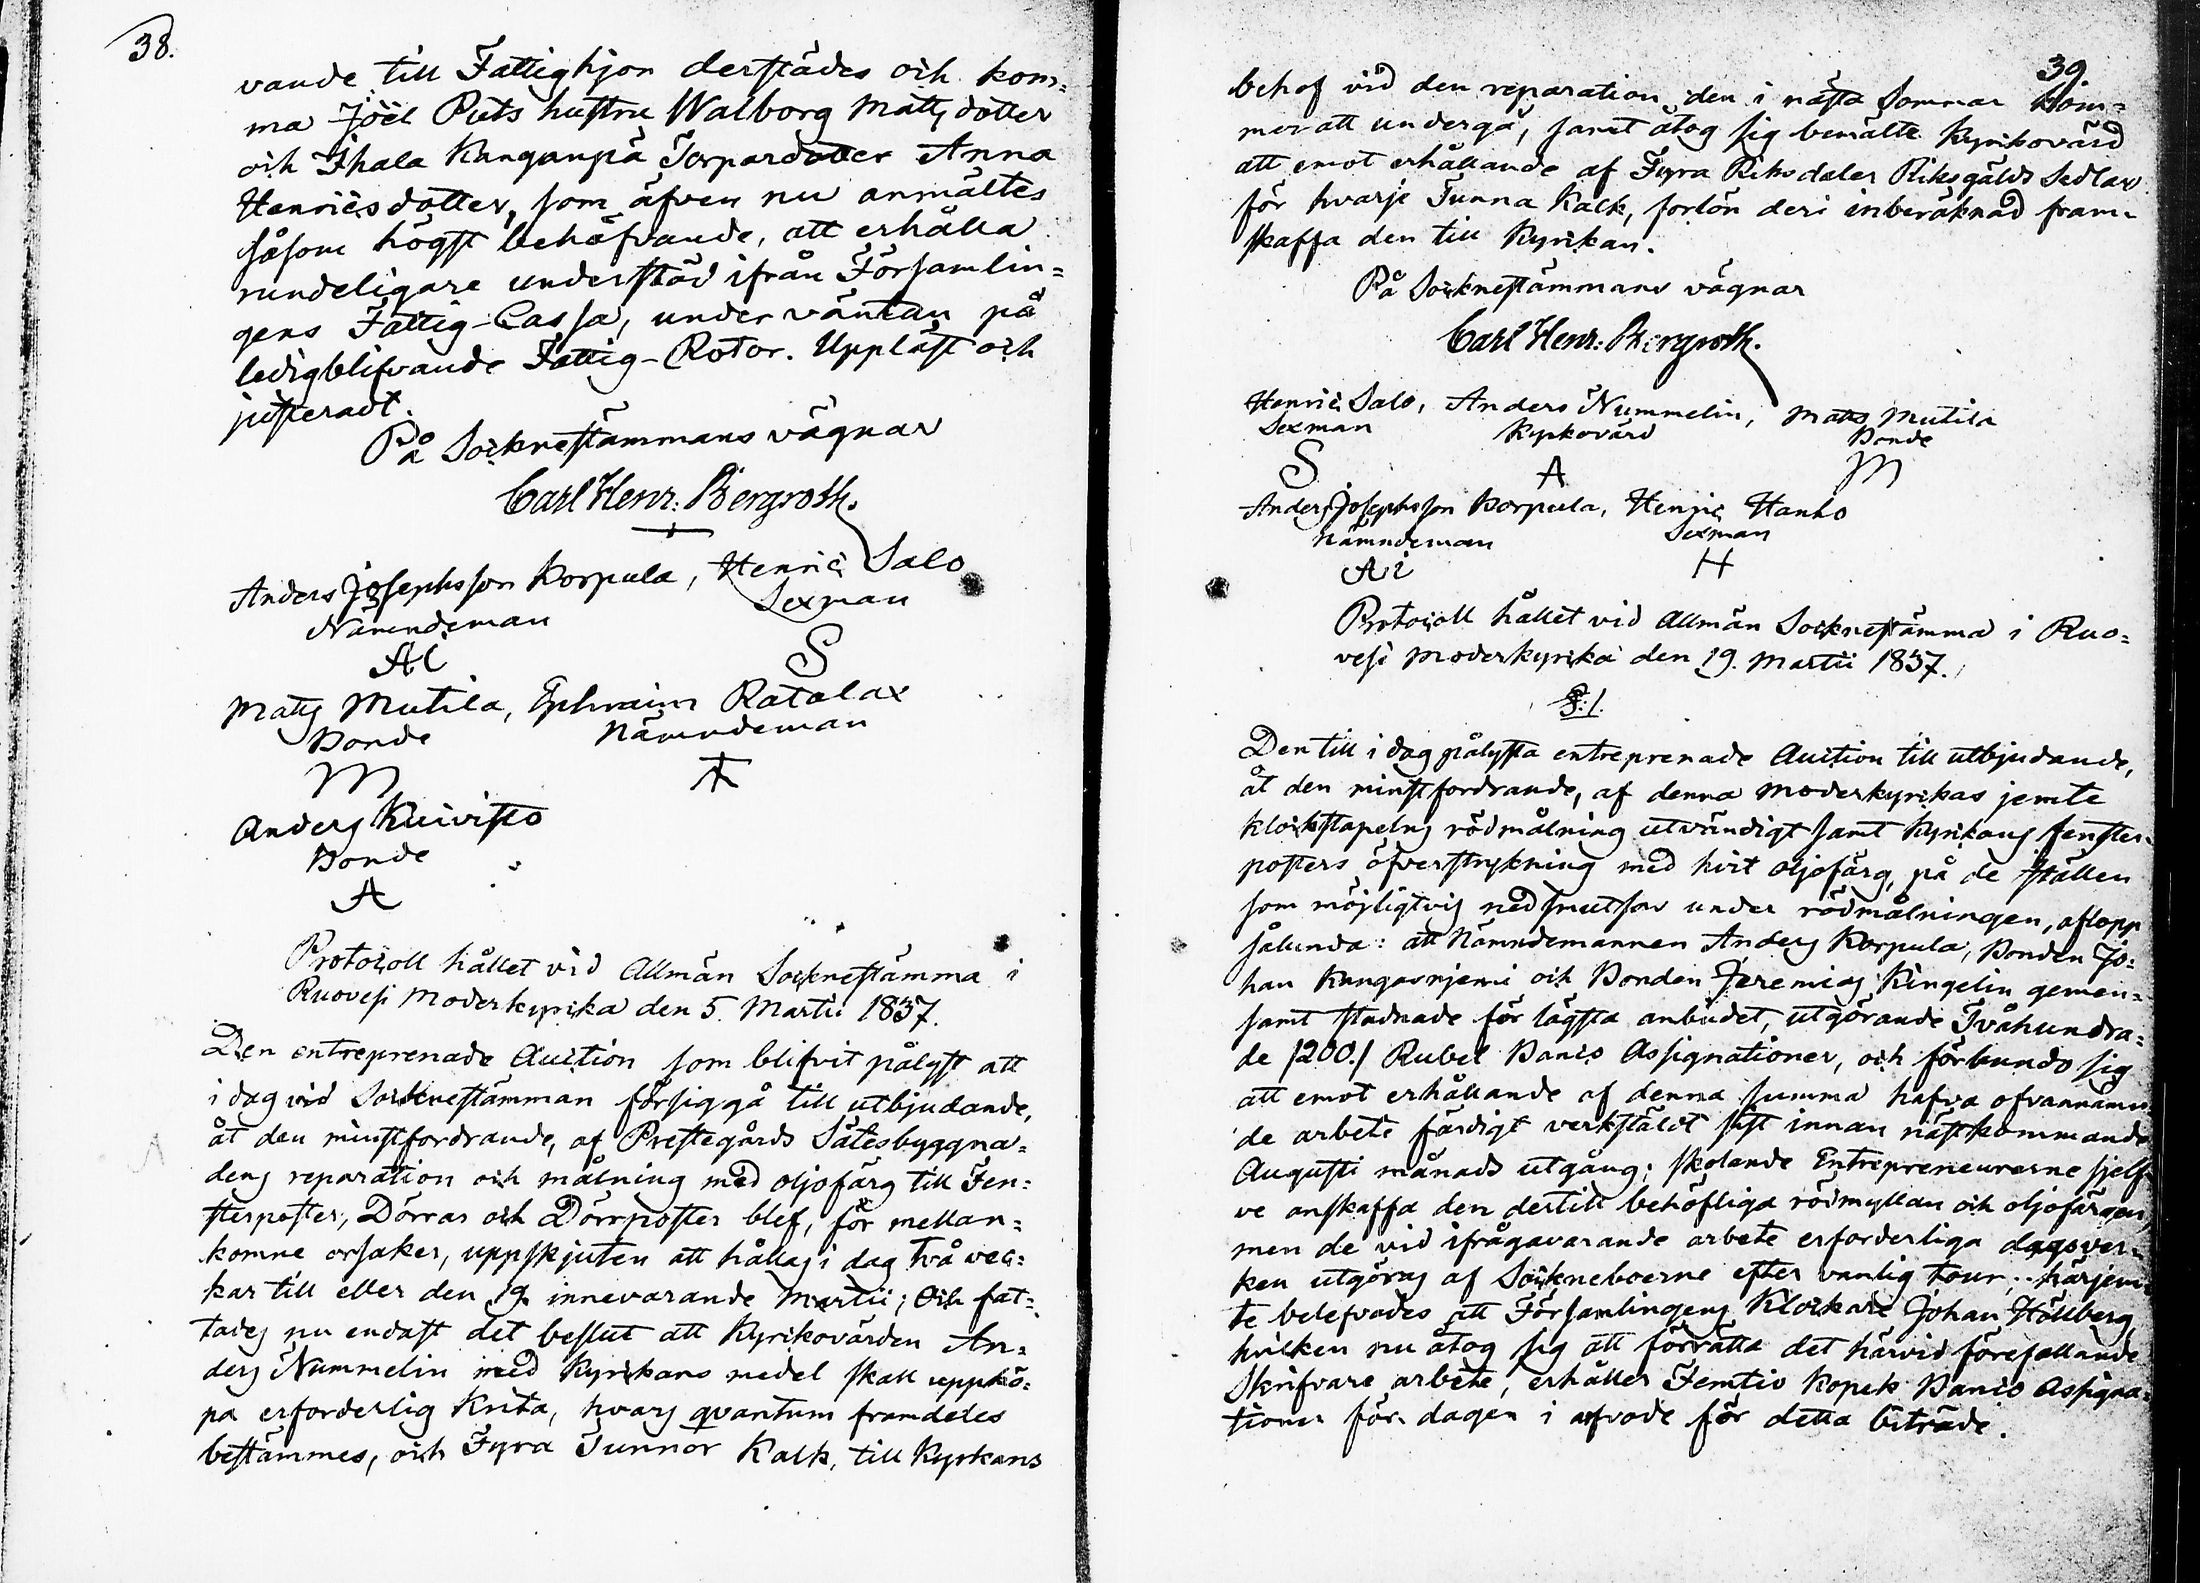 38.
vande till Fattighjon derstädes och kom=
ma Joël Puts hustru Walborg Mattsdotter
och Ihala Kangaspä Torpardotter Anna
Henricsdotter, som äfven nu anmältes
såsom högst behöfvande, att erhålla
rundeligare understöd ifrån Församlin=
gens Fattig-Cassa, under väntan på
ledigblifvande Fattig-Rotor. Uppläst och
justeradt.
På Socknestämmans vägnar
Carl Henr: Bergroth.
Anders Josephsson Korpula, Henric Salo
Nämndeman Sexman
AI S
Matts Mutila, Ephraim Ratalax
Bonde Nämndeman
M
Anders Kuivisto
Bonde
A
Protocoll hållet vid Allmän Socknestämma i
Ruovesi Moderkyrka den 5. Martii 1837.
Den entreprenade Auction som blifvit pålyst att
i dag vid Socknestämman försiggå till utbjudande,
åt den minstfordrande, af Prestegårds Sätesbyggna=
dens reparation och målning med oljofärg till Fen=
sterposter, Dörrar och Dörrposter blef, för mellan=
komne orsaker, uppskjuten att hållas i dag två vec=
kar till eller den 19. innevarande Martii; Och fat=
tades nu endast det beslut att Kyrkovärden An=
ders Nummelin med Kyrkans medel skall uppkö=
pa erforderlig Krita, hvars qvantum framdeles
bestämmes, och Fyra Tunnor Kalk, till Kyrkans
39.
behof vid den reparation den i nästa Sommar kom=
mer att undergå, samt åtog sig bemälte Kyrkovärd
att emot erhållande af Fyra Riksdaler Riksgälds Sedlar
för hvarje Tunna Kalk, forlön deri inberäknad fram=
skaffa den till Kyrkan.
På Socknestämmans vägnar
Carl Henr: Bergroth.
Henric Salo, Anders Nummelin, Matts Mutila
Sexman Kyrkovärd Bonde
S A M
Anders Josephsson Korpula, Henric Hanho
Nämndeman Sexman
AI H
Protocoll hållet vid Allmän Socknestämma i Ruo=
vesi Moderkyrka den 19. Martii 1837.
§:1.
Den till i dag pålysta entreprenade Auction till utbjudande,
åt den minstfordrande, af denna Moderkyrkas jemte
Klockstapelns rödmålning utvändigt samt Kyrkans fenster=
posters öfverstrykning med hvit oljofärg, på de ställen
som möjligtvis nedsmutsas under rödmålningen, aflopp
sålunda: att Nämndemannen Anders Korpula, Bonden Jo=
han Kangasnjemi och Bonden Jeremias Ringelin gemen=
samt stadnade för lägsta anbudet, utgörande Tvåhundra=
de /200./ Rubel Banco Assignationer, och förbundo sig
att emot erhållande af denna summa hafva ofvannämn=
de arbete färdigt verkstäldt sist innan nästkommande
Augusti månads utgång; skolande Entrepreneurerne sjelf=
ve anskaffa den dertill behöfliga rödmyllan och oljofärgen,
men de vid ifrågavarande arbete erforderliga dagsver=
ken utgöras af Sockneboerne efter vanlig tour; härjem=
te belefvades att Församlingens Klockare Johan Hällberg,
hvilken nu åtog sig att förrätta det härvid förefallande
Skrifvare arbete, erhåller Femtio Kopek Banco Assigna=
tioner för dagen i arfvode för detta biträde.